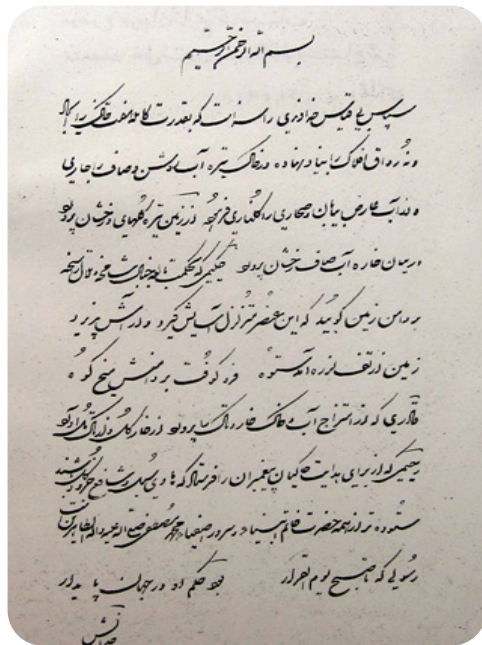 بسم الله الرحمن الرحیم
سپاس بی قیاس خداوندی را سزاست که بقدرت کامله هفت خاک را
و نه رواق افلاک را بنیاد نهاده در خاک تیره آب روشن و صاف را جاری
و از آب عارض بیابان و صحاری را گلناری فرموده از زمین تیره گلهای درخشان پرورد
و ز میان خاره آب صاف رخشان پرورد حکیمی که بحکمت بالغه جبال شامخه و تلال راسخه
بر دامن زمین کوبید که این عنصر متزلزل آسایش گیرد و در آتش پرزید
زمین از تف لرزه آمد ستوه فرو کوفت بر دامنش میخ کوه
قادری که از امتزاج آب و خاک خار و تاک را پرورد از خار گل و از تاک مل آورد
رحیمی که از برای هدایت خاکیان پیغمبران را فرستاد که هادی سبل و شافع جزو کل باشند
ستوده تر از همه حضرت خاتم انبیا و سرور اصفیا محمد مصطفی صلی الله علیه و آله الطاهرین است
رسولی که تا صبح یوم القرار بود حکم او در جهان پایدار